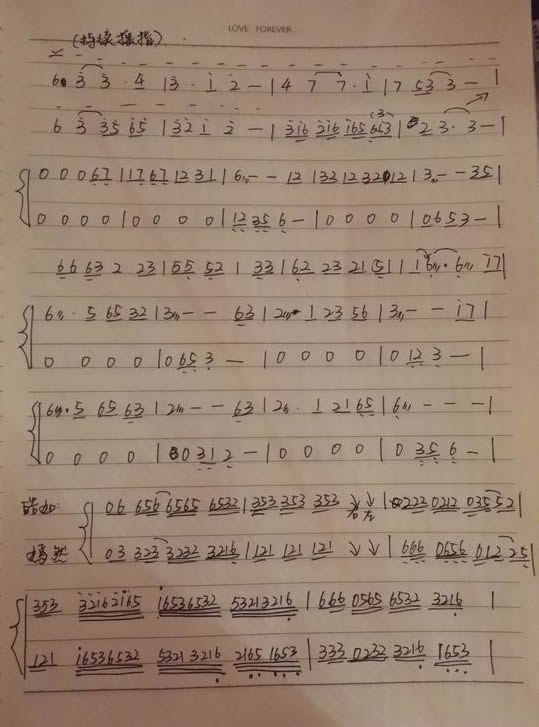 LOVE FOREVER
(持续摇指)
6 3 3 · 4 | 3 · 1 2 - | 4 7 7 · 1 | 7 53 3 - |
6 3 35 65 | 32 1 2 - | 316 216 165 653 | 2 3 · 3 - |
0 0 0 67 | 17 67 12 31 | 6 - - 12 | 32 12 32 12 | 3 - - 35 |
0 0 0 0 | 0 0 0 0 | 12 35 6 - | 0 0 0 0 | 0 65 3 - |
66 63 2 23 | 55 52 1 33 | 62 23 21 5 | 1 16 · 6 17 |
6 · 5 65 32 | 3 - - 63 | 2 · 1 23 56 | 3 - - 17 |
0 0 0 0 | 0 65 3 - | 0 0 0 0 | 0 12 3 - |
6 · 5 65 63 | 2 - - 63 | 2 · 1 21 65 | 6 - - - |
0 0 0 0 | 0 31 2 - | 0 0 0 0 | 0 35 6 - |
06 656 6565 6532 | 353 353 353 | 0223 0212 035 52 |
嫣然 03 323 3232 3216 | 121 121 121 | 666 0656 012 25 |
353 32162165 16536532 53213216 | 666 0565 6532 3216 |
121 16536532 53213216 2165 1653 | 333 0232 3216 1653 |